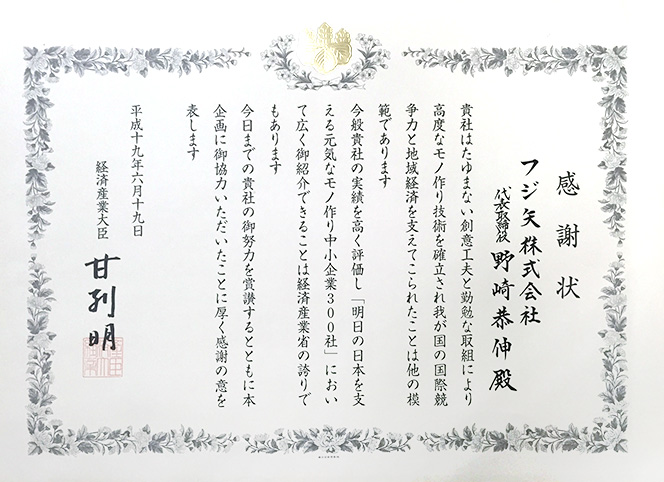 感謝状
フジ矢株式会社
代表取締役 野崎恭伸 殿
貴社はたゆまない創意工夫と勤勉な取組により
高度なモノ作り技術を確立され我が国の国際競
争力と地域経済を支えてこられたことは他の模
範であります
今般貴社の実績を高く評価し「明日の日本を支
える元気なモノ作り中小企業300社」におい
て広く御紹介できることは経済産業省の誇りで
もあります
今日までの貴社の御努力を賞讃するとともに本
企画に御協力いただいたことに厚く感謝の意を
表します
平成十九年六月十九日
経済産業大臣 甘利明